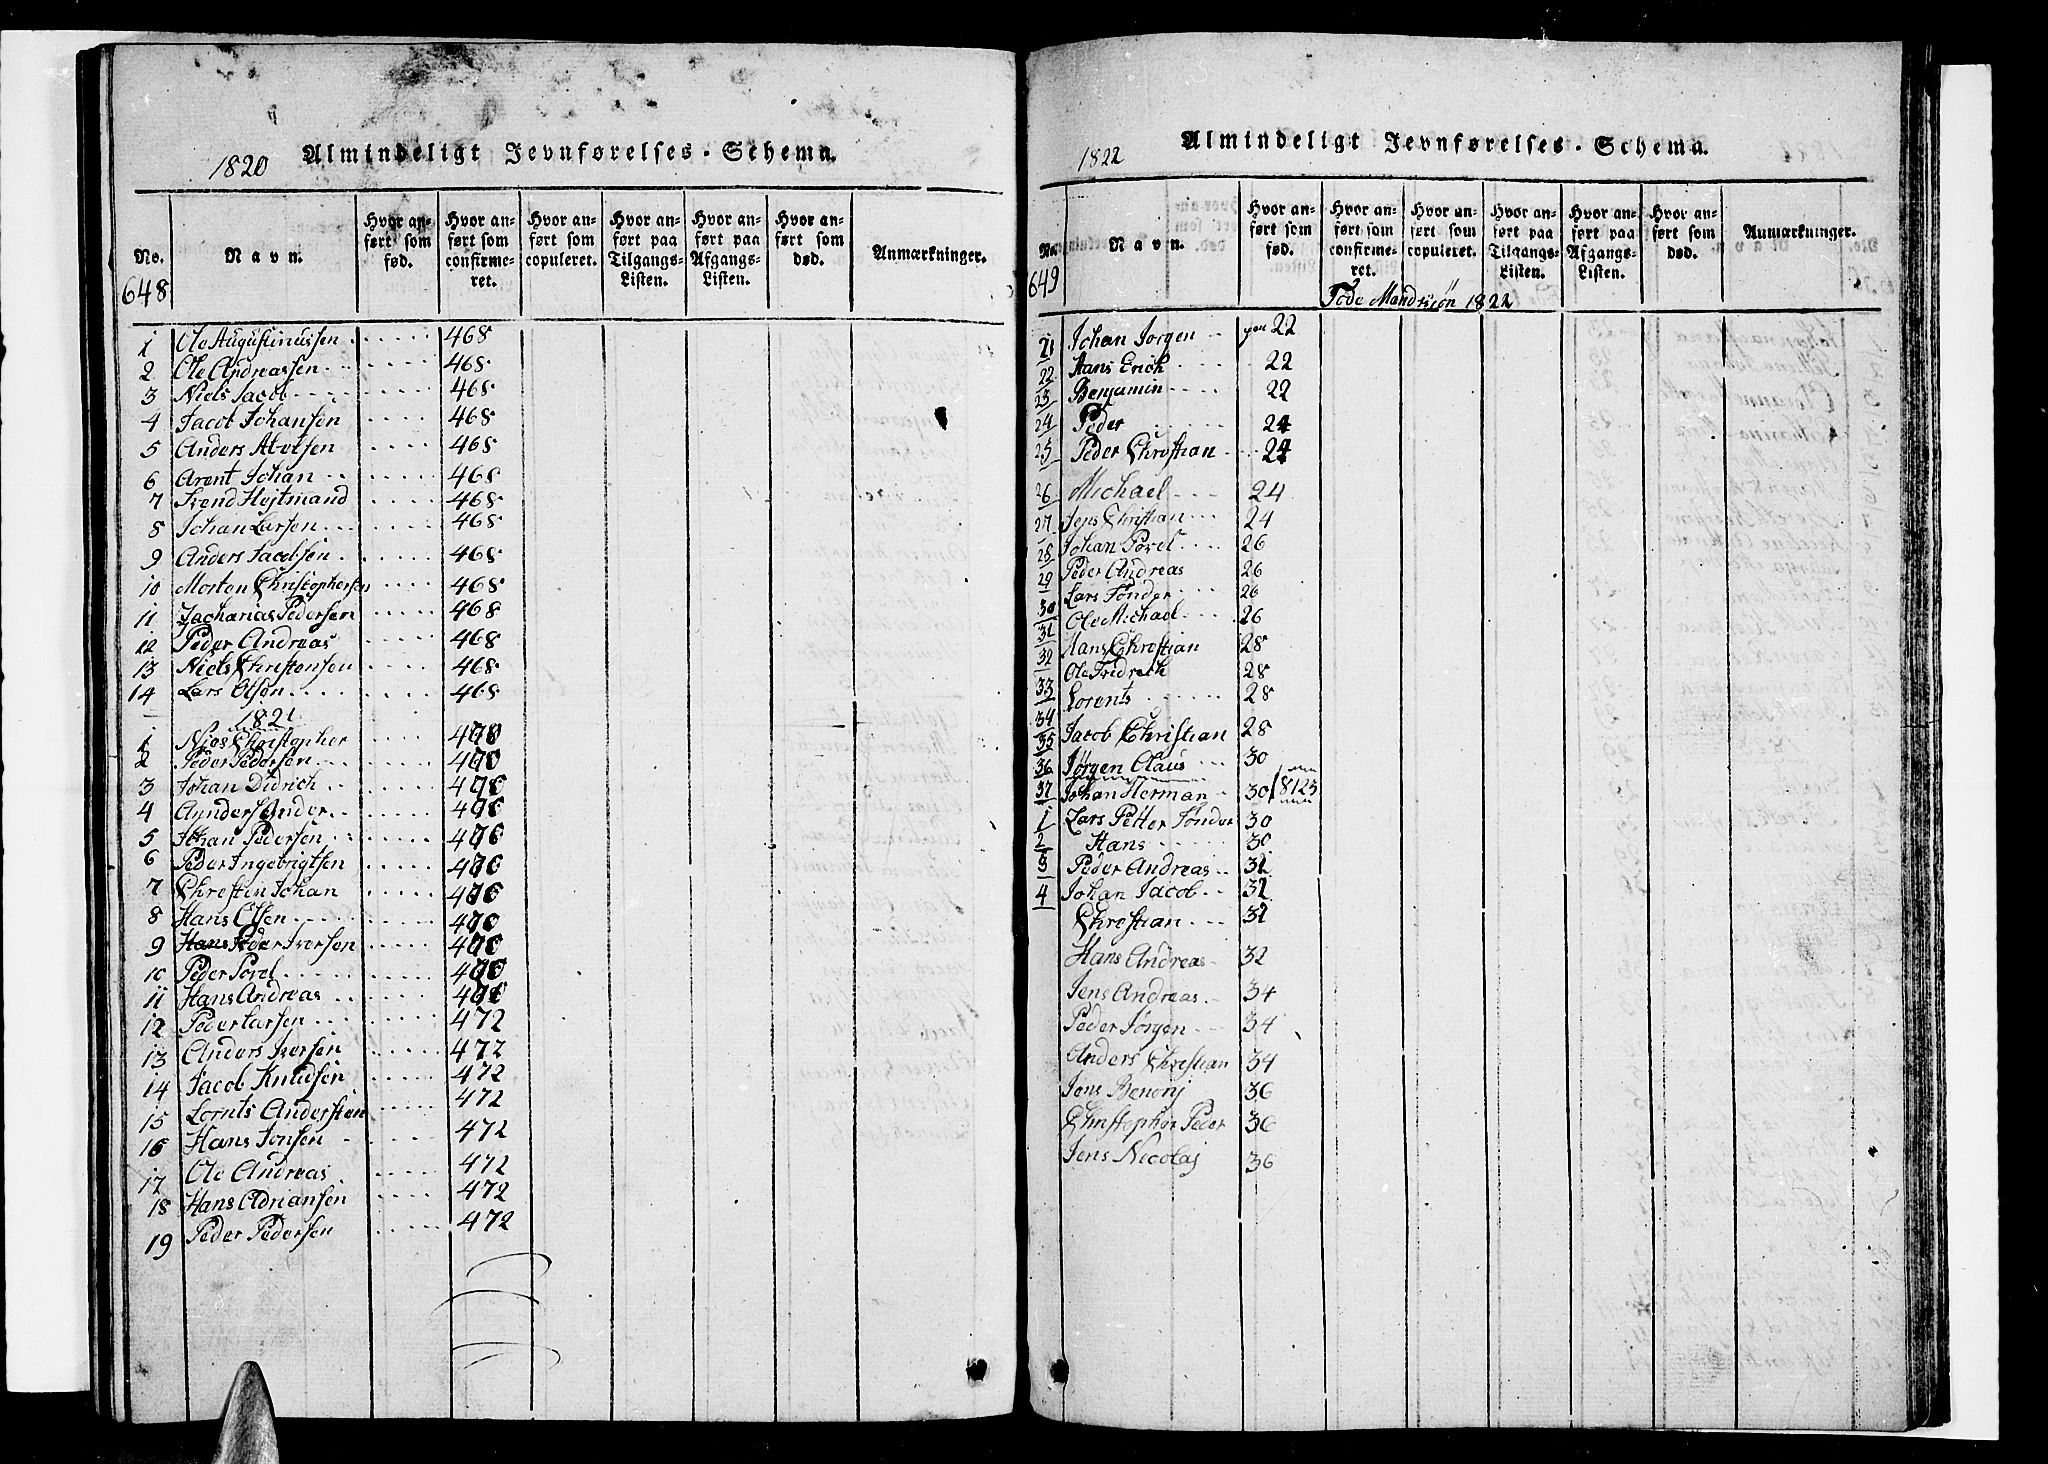 1820 Almindeligt Jevnførelses-Schema.
No. Navn. Hvor anført som fød. Hvor anført som confirmeret. Hvor anført som copuleret. Hvor anført paa Tilgangs-Listen. Hvor anført paa Afgangs-Listen. Hvor anført som død. Anmærkninger.
648
1 Ole Augustinussen 468
2 Ole Andreassen 468
3 Niels Jacob 468
4 Jacob Johansen 468
5 Anders 468
6 Arent Johan 468
7 Svend Hejtmand 468
8 Johan Larsen 468
9 Anders Jacobsen 468
10 Morten Christophersen 468
11 Zacharias Pedersen 468
12 Peder Andreas 468
13 Niels Christensen 468
14 Lars Olsen 468
1821
1 Christopher
2 Peder Pedersen
3 Johan Didrich
4
5 Johan Pedersen
6 Peder Ingebrigtsen
7 Christin Johan
8 Hans Olsen
9 Hans Peder Iversen
10 Peder Povel
11 Hans Andreas
12 Peder Larsen 472
13 Anders Iversen 472
14 Jacob Knudsen 472
15 Lornts Anderssen 472
16 Hans Jonsen 472
17 Ole Andreas 472
18 Hans Adriansen 472
19 Peder Pedersen 472
1822 Almindeligt Jevnførelses-Schema.
No. Navn. Hvor anført som fød. Hvor anført som confirmeret. Hvor anført som copuleret. Hvor anført paa Tilgangs-Listen. Hvor anført paa Afgangs-Listen. Hvor anført som død. Anmærkninger.
649 Føde Mandkjøn 1822
21 Johan Jørgen 22
22 Hans Erich 22
23 Benjamin 22
24 Peder 24
25 Peder Christian 24
26 Michael 24
27 Jens Christian 24
28 Johan Povel 26
29 Peder Andreas 26
30 Lars Tønder 26
31 Ole Michael 26
32 Hans Christian 28
33 Ole Fridrich 28
34 Lorents 28
35 Jacob Christian 28
36 Jørgen Claus 30
37 Johan Herman 30
1 Lars Petter Tønder 30
2 Hans 30
3 Peder Andreas 32
4 Johan Jacob 32
Christian 32
Hans Andreas 32
Jens Andreas 34
Peder Jørgen 34
Anders Christian 34
Jens Benonj 36
Christopher Peder 36
Jens Nicolaj 36